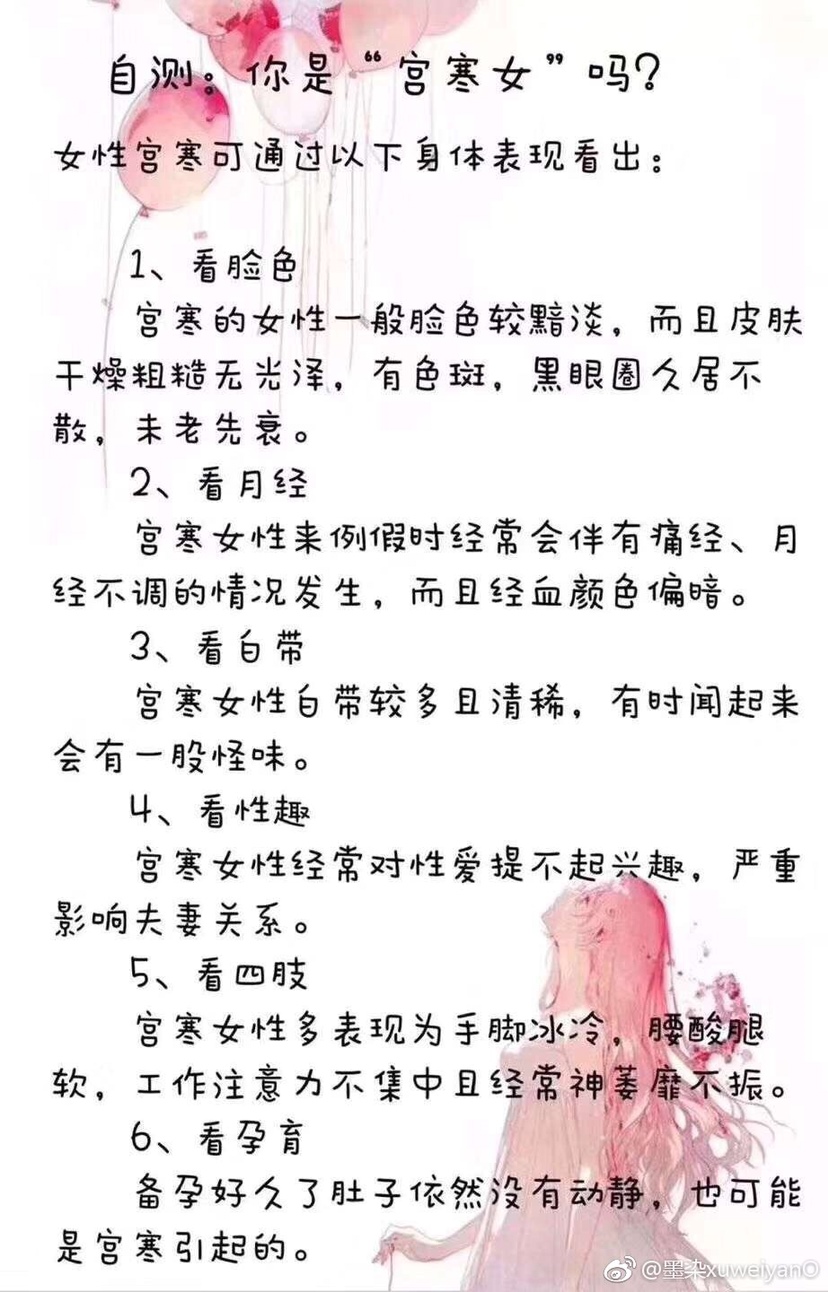 自测：你是“宫寒女”吗？
女性宫寒可通过以下身体表现看出：
1、看脸色
宫寒的女性一般脸色较黯淡，而且皮肤
干燥粗糙无光泽，有色斑，黑眼圈久居不
散，未老先衰。
2、看月经
宫寒女性来例假时经常会伴有痛经、月
经不调的情况发生，而且经血颜色偏暗。
3、看白带
宫寒女性白带较多且清稀，有时闻起来
会有一股怪味。
4、看性趣
宫寒女性经常对性爱提不起兴趣，严重
影响夫妻关系。
5、看四肢
宫寒女性多表现为手脚冰冷，腰酸腿
软，工作注意力不集中且经常神萎靡不振。
6、看孕育
备孕好久了肚子依然没有动静，也可能
是宫寒引起的。
@墨染xuweiyanO